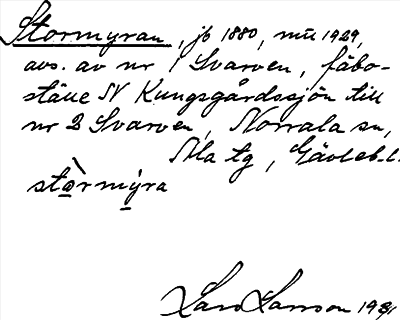 Stormyran, jb 1880, mtt 1929,
avs. av nr 1 Svarven, fäbo-
ställe N Kungsgårdssjön till
nr 2 Svarven, Norrala sn,
Ala tg, Gävleb. l.
stòrmýra
Lars Larsson 1931